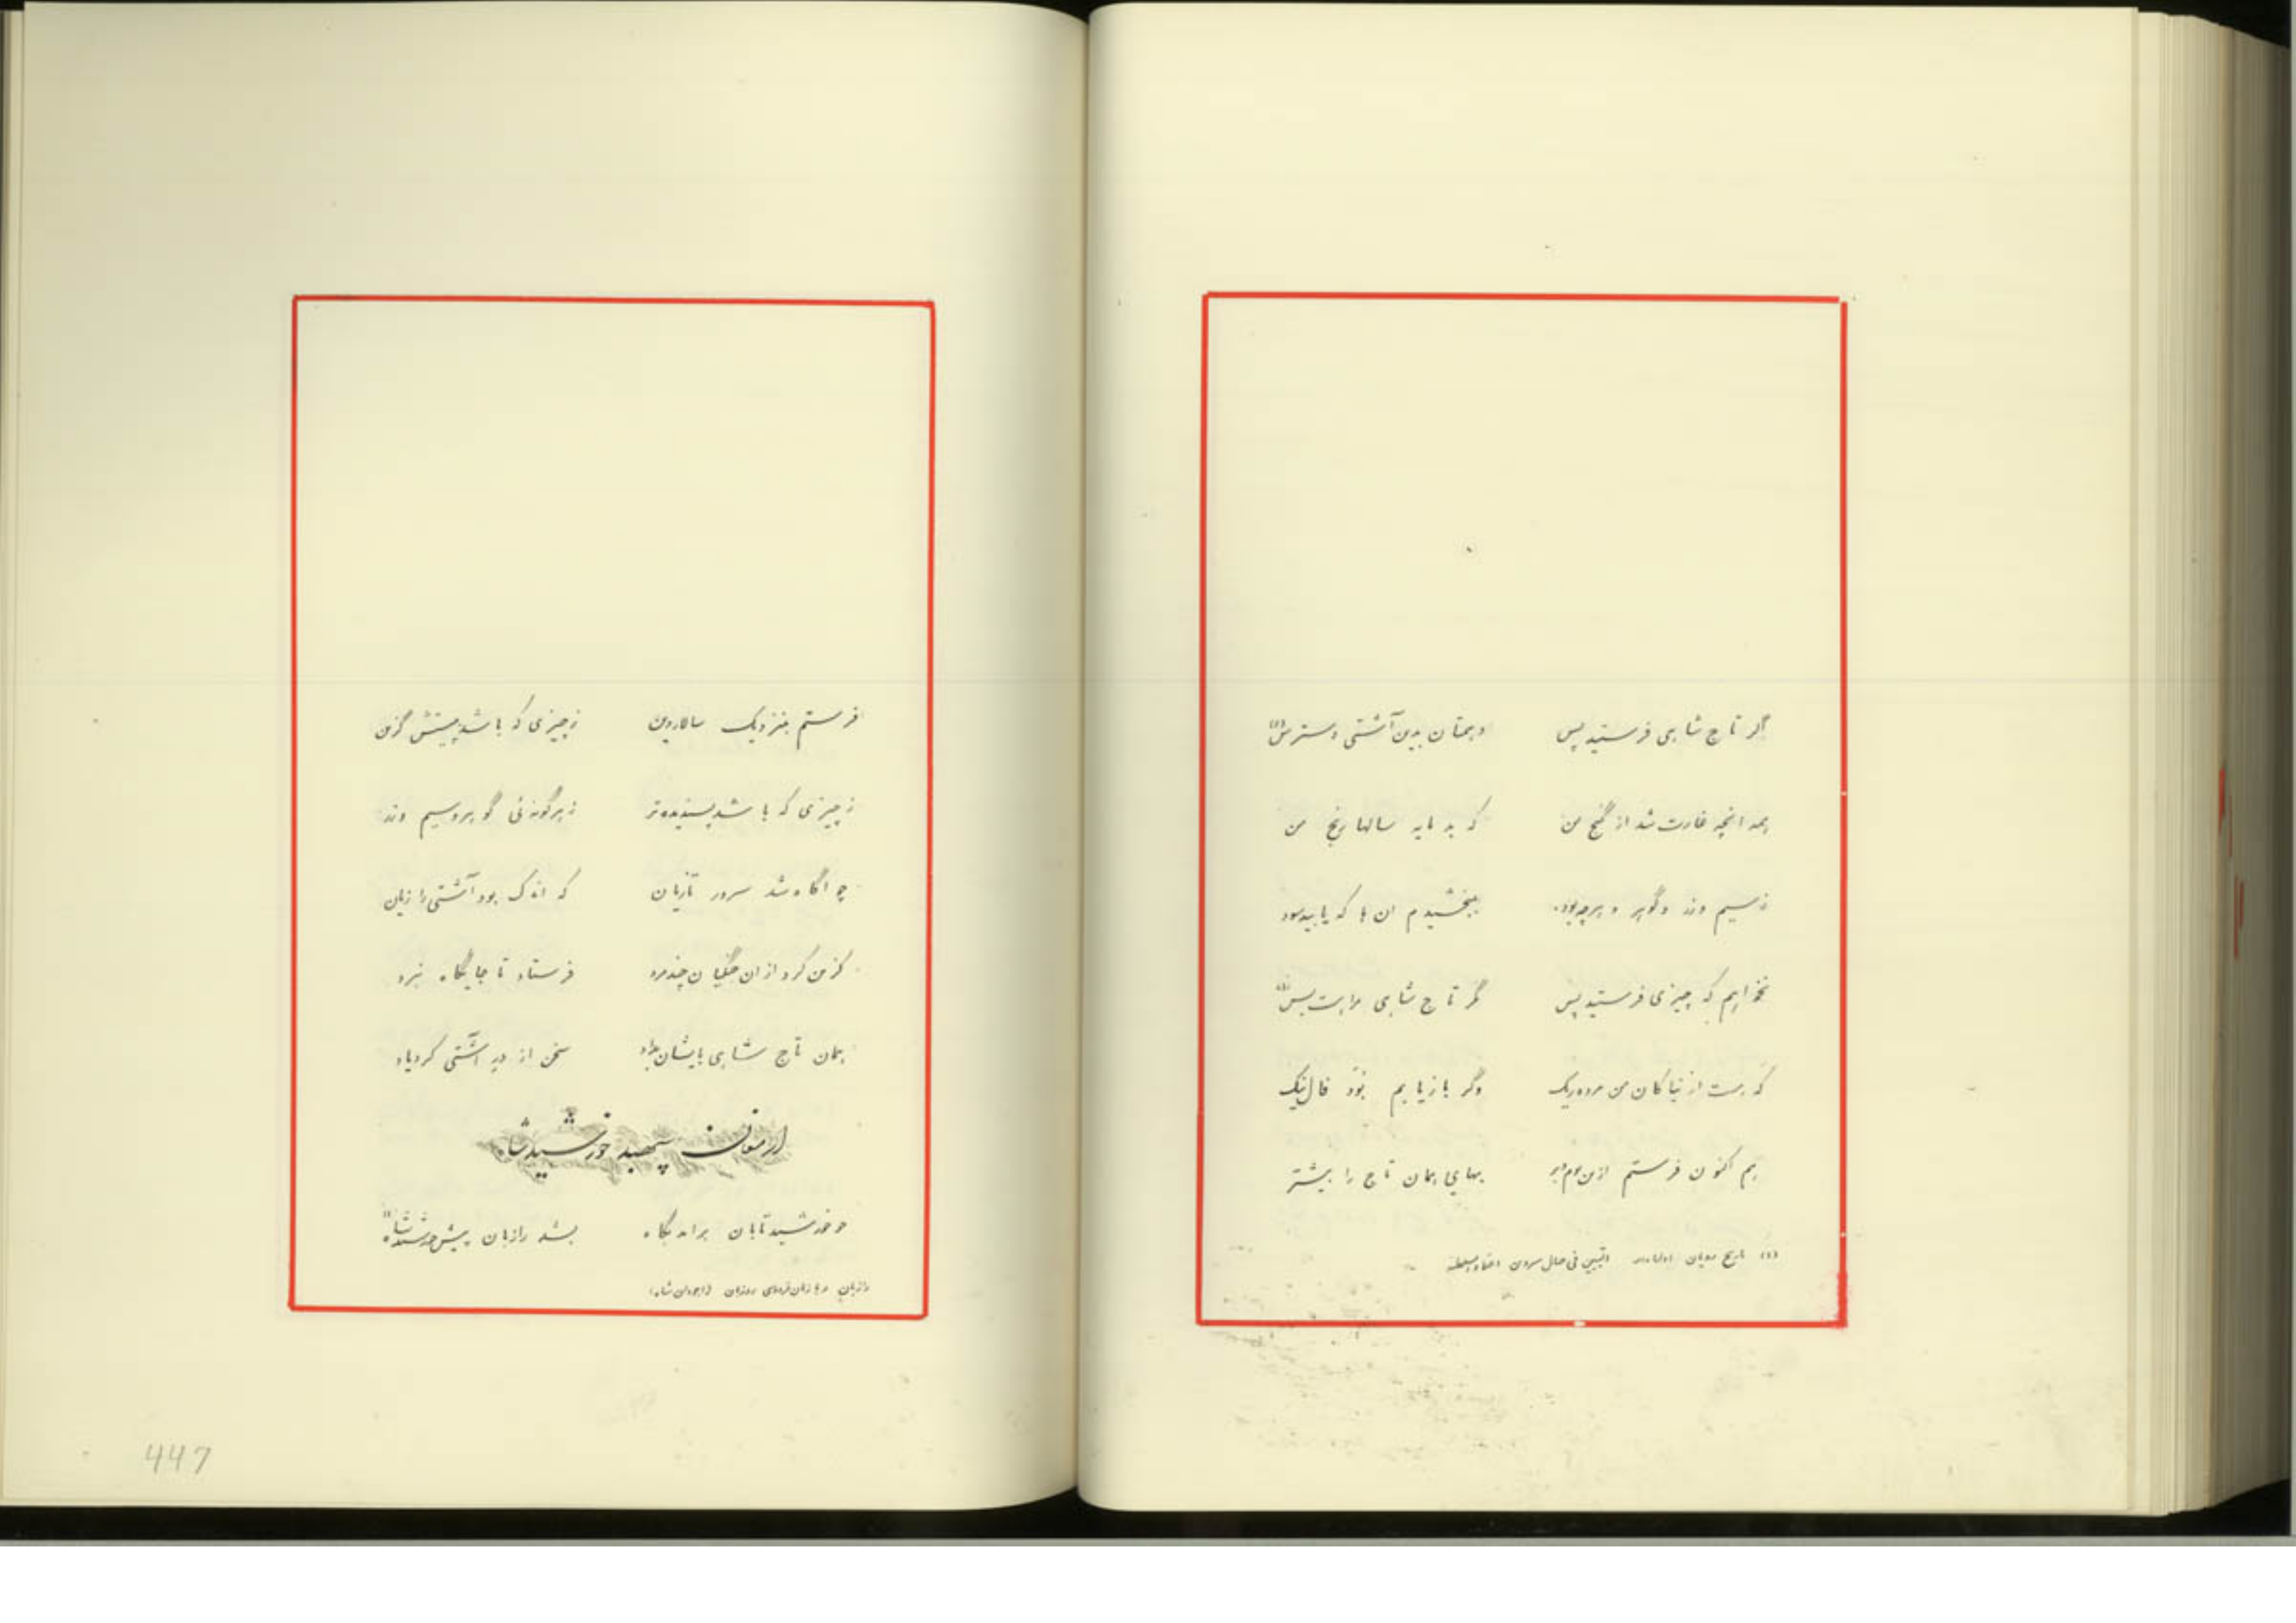 اگر تاج شاهی فرستید پس دهمتان بدین آشتی دسترس (۱)
همه انچه غارت شد از گنج من که بد مایه سالها رنج من
ز سیم و زر و گوهر و هرچه بود ببخشیدم ان ها که یابید سود
نخواهم که چیزی فرستید پس مگر تاج شاهی مراهست بس
که هست از نیاکان من مرده‌ریک وگر بازیابم بود فال نیک
هم اکنون فرستم ازین بوم و بر بهای همان تاج را بیشتر
(۱) تاریخ رویان اولیاء
فرستم بنزدیک سالار دین ز چیزی که باشد پیشش گزین
ز چیزی که باشد پسندیده‌تر ز هرگونه‌ئی گوهر و سیم و زر
چو اگاه شد سرور تازیان که اندک بود آشتی را زیان
گزین کرد از ان جنگیان چند مرد فرستاد تا جایگاه نبرد
همان تاج شاهی بایشان بداد سخن از در آشتی کرد یاد
ارمغان سپهبد خورشیدشاه
چو خورشید تابان برامد بگاه بشد رازبان پیش خورشیدشاه (۱)
447